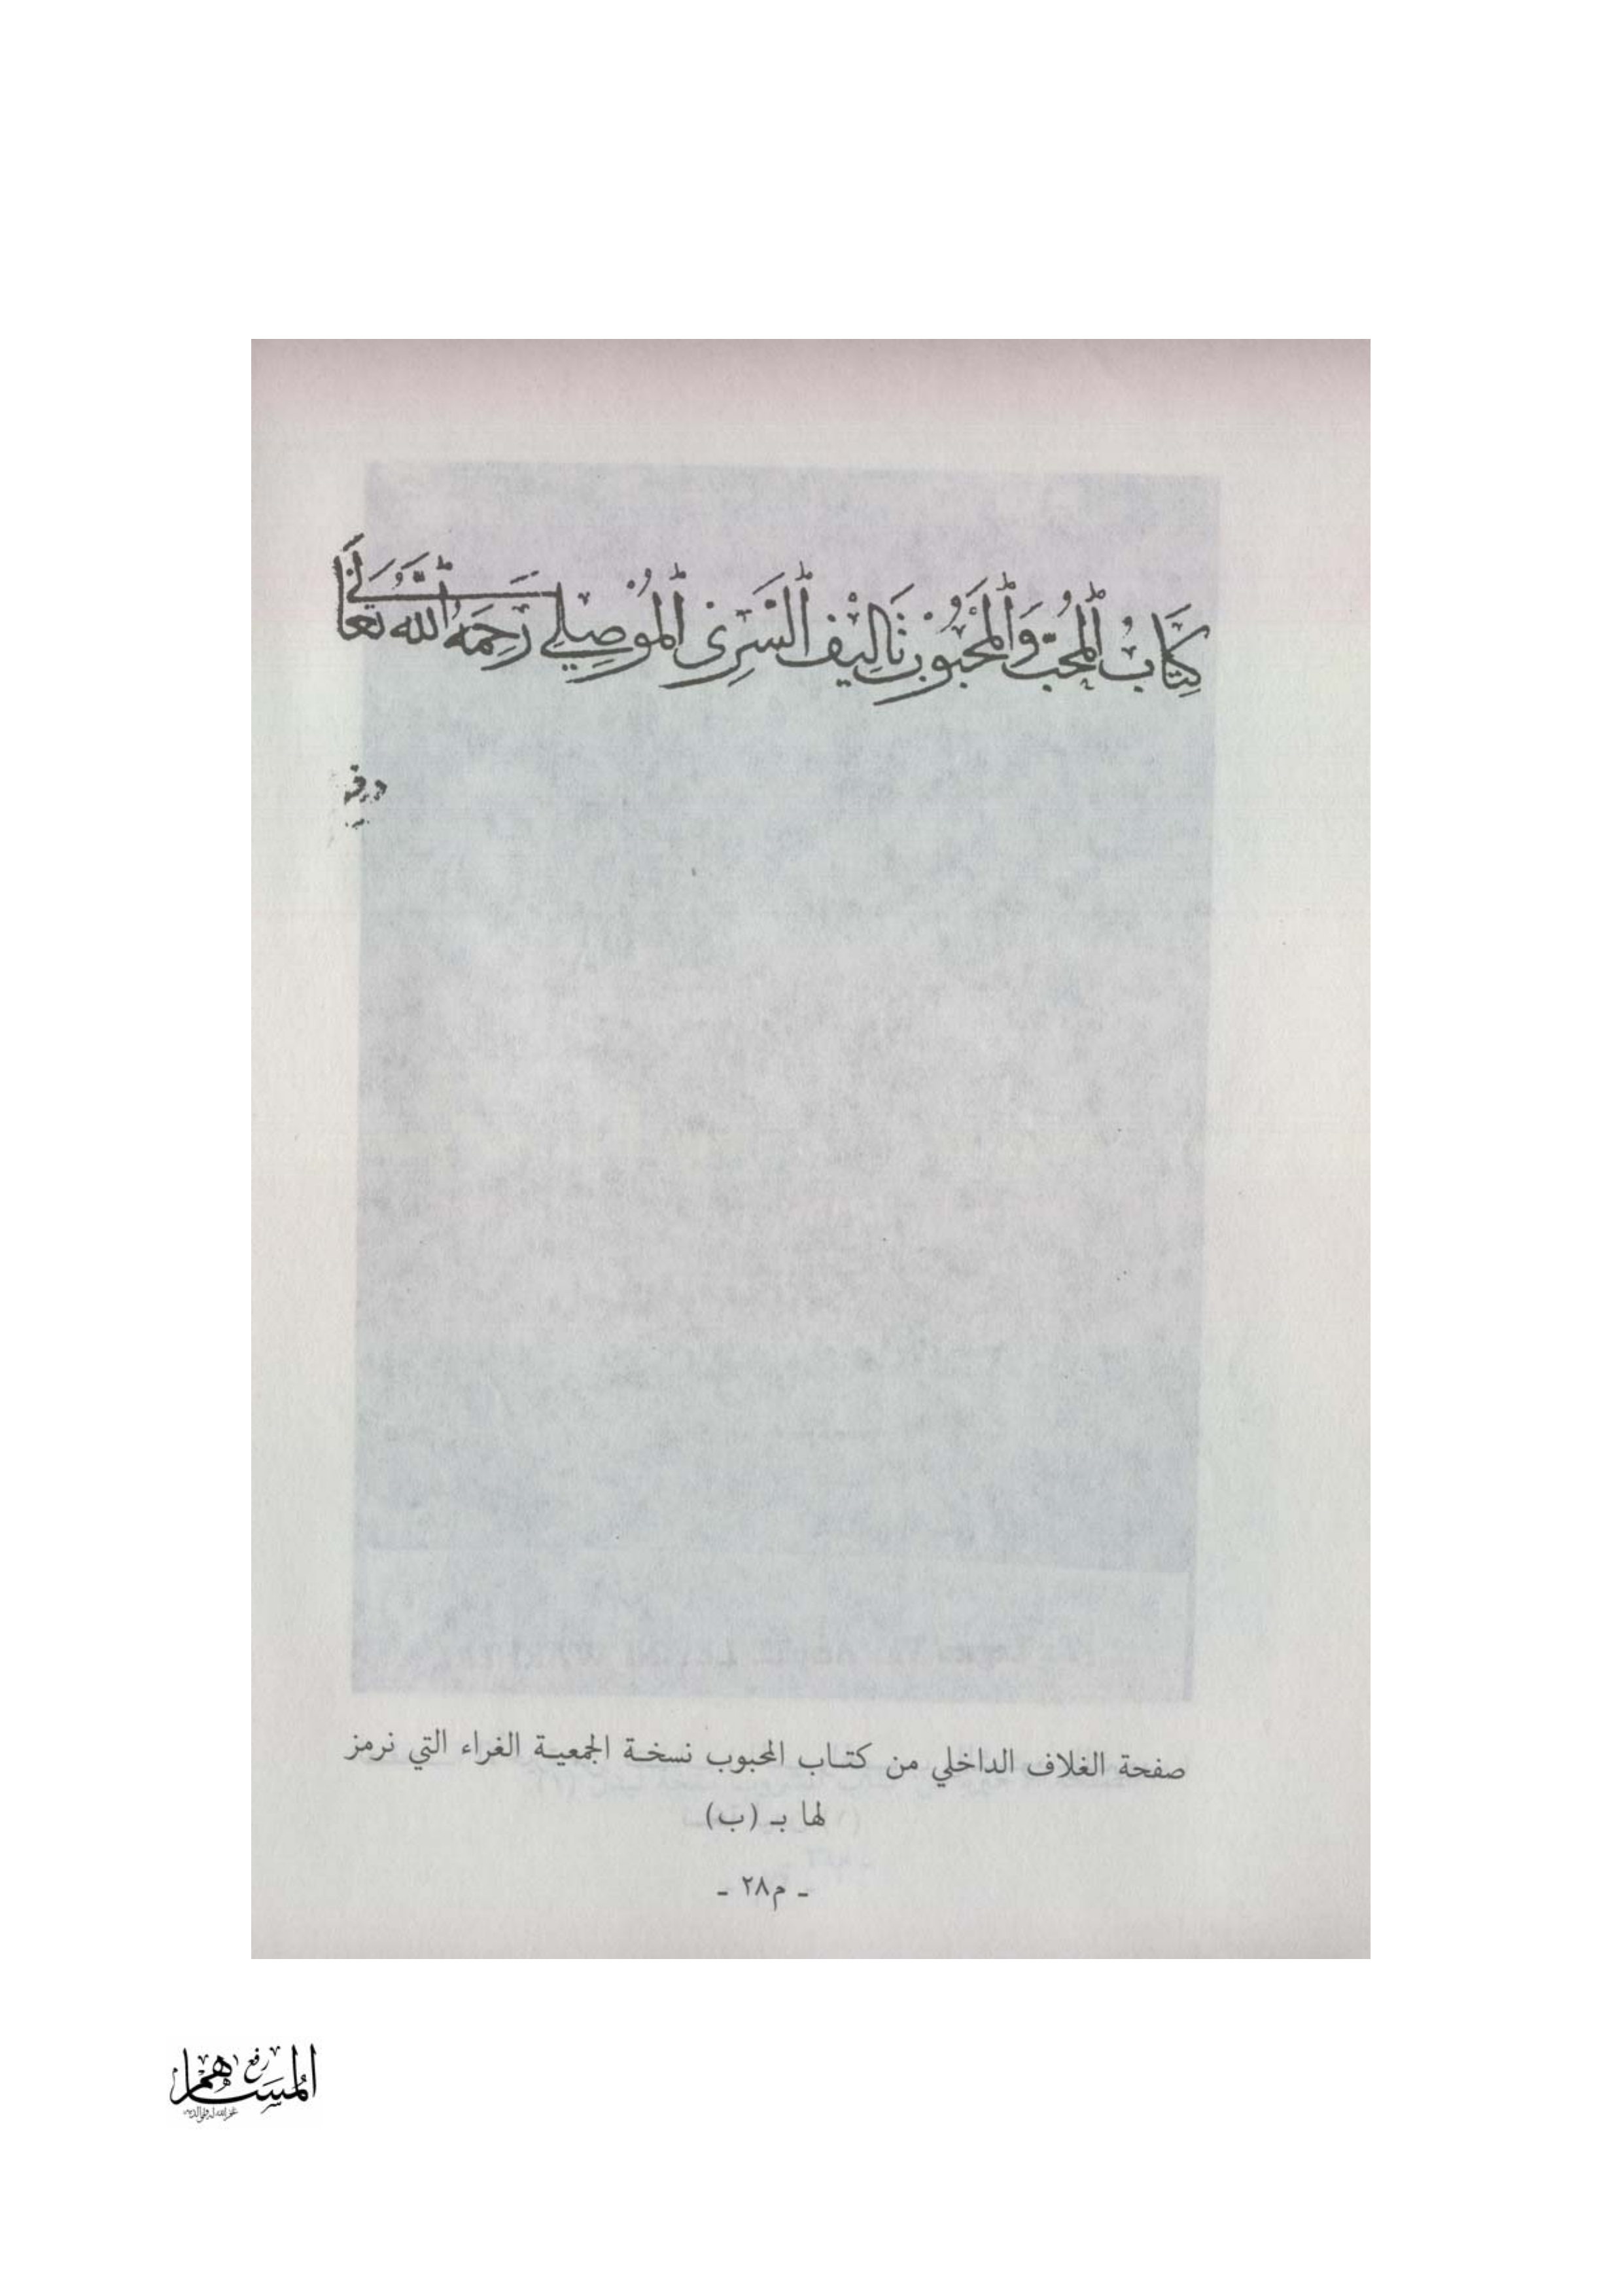 كِتَابُ المُحِبِّ وَالمَحْبُوبِ تَأليف السَّرِىِّ المُوْصِلِي رَحِمَهُ اللهُ تَعَالَى
صفحة الغلاف الداخلي من كتاب المحبوب نسخة الجمعية الغراء التي نرمز
لها بـ (ب)
- م٢٨ -
رفع
المساهم